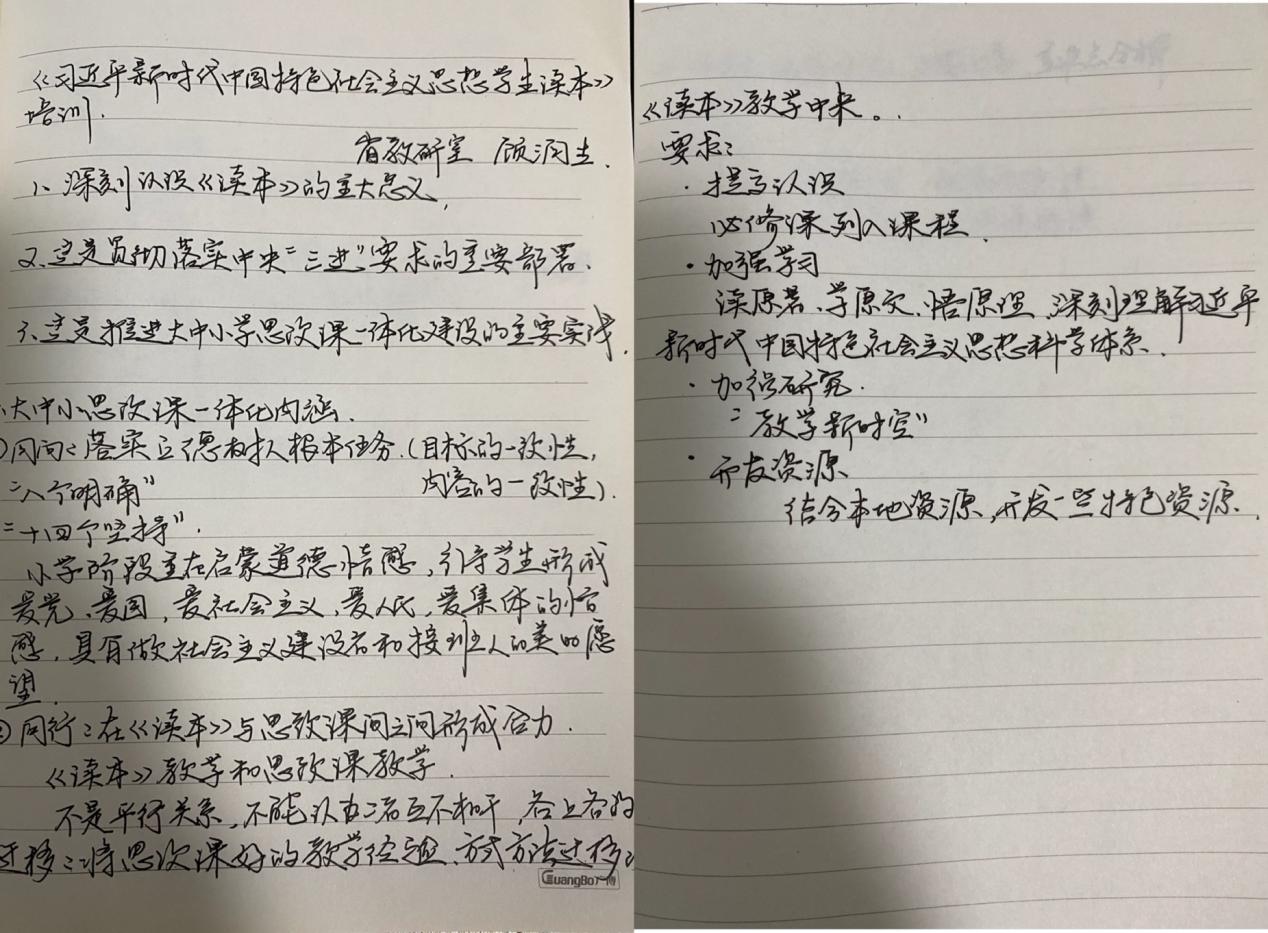 《习近平新时代中国特色社会主义思想学生读本》
培训.
省教研室 顾润生.
1、深刻认识《读本》的重大意义,
2、这是贯彻落实中央“三进”要求的重要部署.
3、这是推进大中小学思政课一体化建设的重要实践.
大中小思政课一体化内涵.
同向:落实立德树人根本任务.(目标的一致性,
“八个明确” 内容的一致性).
“十四个坚持”.
小学阶段重在启蒙道德情感,引导学生形成
爱党、爱国,爱社会主义,爱人民,爱集体的情
感,具有做社会主义建设者和接班人的美好愿
望.
②同行:在《读本》与思政课间之间形成合力.
《读本》教学和思政课教学.
不是平行关系,不能认为二者互不相干,各上各的
迁移:将思政课好的教学经验、方式方法迁移
GuangBo广博
《读本》教学中来。.
要求:
·提高认识
必修课列入课程.
·加强学习
读原著、学原文、悟原理,深刻理解习近平
新时代中国特色社会主义思想科学体系.
·加强研究.
“教学新时空”
·开发资源
结合本地资源,开发一些特色资源.